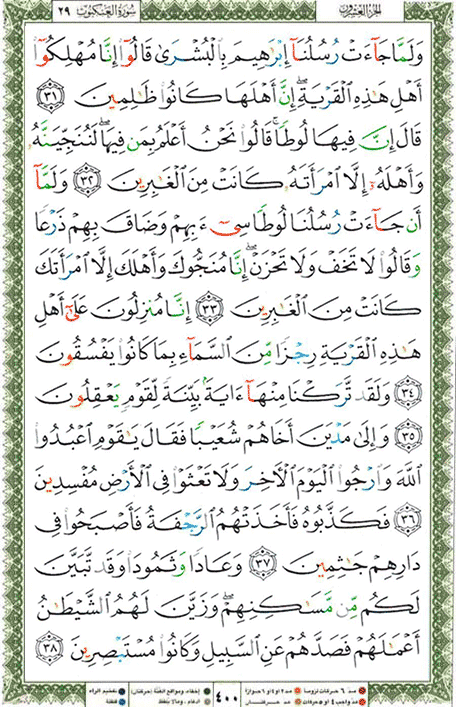 الجزء العشرون سورة العنكبوت ٢٩
وَلَمَّا جَآءَتْ رُسُلُنَآ إِبْرَٰهِيمَ بِٱلْبُشْرَىٰ قَالُوٓا۟ إِنَّا مُهْلِكُوٓا۟
أَهْلِ هَـٰذِهِ ٱلْقَرْيَةِ ۖ إِنَّ أَهْلَهَا كَانُوا۟ ظَـٰلِمِينَ ٣١
قَالَ إِنَّ فِيهَا لُوطًا ۚ قَالُوا۟ نَحْنُ أَعْلَمُ بِمَن فِيهَا ۖ لَنُنَجِّيَنَّهُۥ
وَأَهْلَهُۥٓ إِلَّا ٱمْرَأَتَهُۥ كَانَتْ مِنَ ٱلْغَـٰبِرِينَ ٣٢ وَلَمَّآ
أَن جَآءَتْ رُسُلُنَا لُوطًا سِىٓءَ بِهِمْ وَضَاقَ بِهِمْ ذَرْعًا
وَقَالُوا۟ لَا تَخَفْ وَلَا تَحْزَنْ ۖ إِنَّا مُنَجُّوكَ وَأَهْلَكَ إِلَّا ٱمْرَأَتَكَ
كَانَتْ مِنَ ٱلْغَـٰبِرِينَ ٣٣ إِنَّا مُنزِلُونَ عَلَىٰٓ أَهْلِ
هَـٰذِهِ ٱلْقَرْيَةِ رِجْزًا مِّنَ ٱلسَّمَآءِ بِمَا كَانُوا۟ يَفْسُقُونَ
٣٤ وَلَقَد تَّرَكْنَا مِنْهَآ ءَايَةًۢ بَيِّنَةً لِّقَوْمٍ يَعْقِلُونَ
٣٥ وَإِلَىٰ مَدْيَنَ أَخَاهُمْ شُعَيْبًا فَقَالَ يَـٰقَوْمِ ٱعْبُدُوا۟
ٱللَّهَ وَٱرْجُوا۟ ٱلْيَوْمَ ٱلْـَٔاخِرَ وَلَا تَعْثَوْا۟ فِى ٱلْأَرْضِ مُفْسِدِينَ
٣٦ فَكَذَّبُوهُ فَأَخَذَتْهُمُ ٱلرَّجْفَةُ فَأَصْبَحُوا۟ فِى
دَارِهِمْ جَـٰثِمِينَ ٣٧ وَعَادًا وَثَمُودَا۟ وَقَد تَّبَيَّنَ
لَكُم مِّن مَّسَـٰكِنِهِمْ ۖ وَزَيَّنَ لَهُمُ ٱلشَّيْطَـٰنُ
أَعْمَـٰلَهُمْ فَصَدَّهُمْ عَنِ ٱلسَّبِيلِ وَكَانُوا۟ مُسْتَبْصِرِينَ ٣٨
مد ٦ حركات لزوماً مد ٢ او ٤ او ٦ جوازاً
مد واجب ٤ او ٥ حركات مد حركتان
٤٠٠
إخفاء، ومواقع الغنّة (حركتان) تفخيم الراء
ادغام، وما لا يلفظ قلقلة